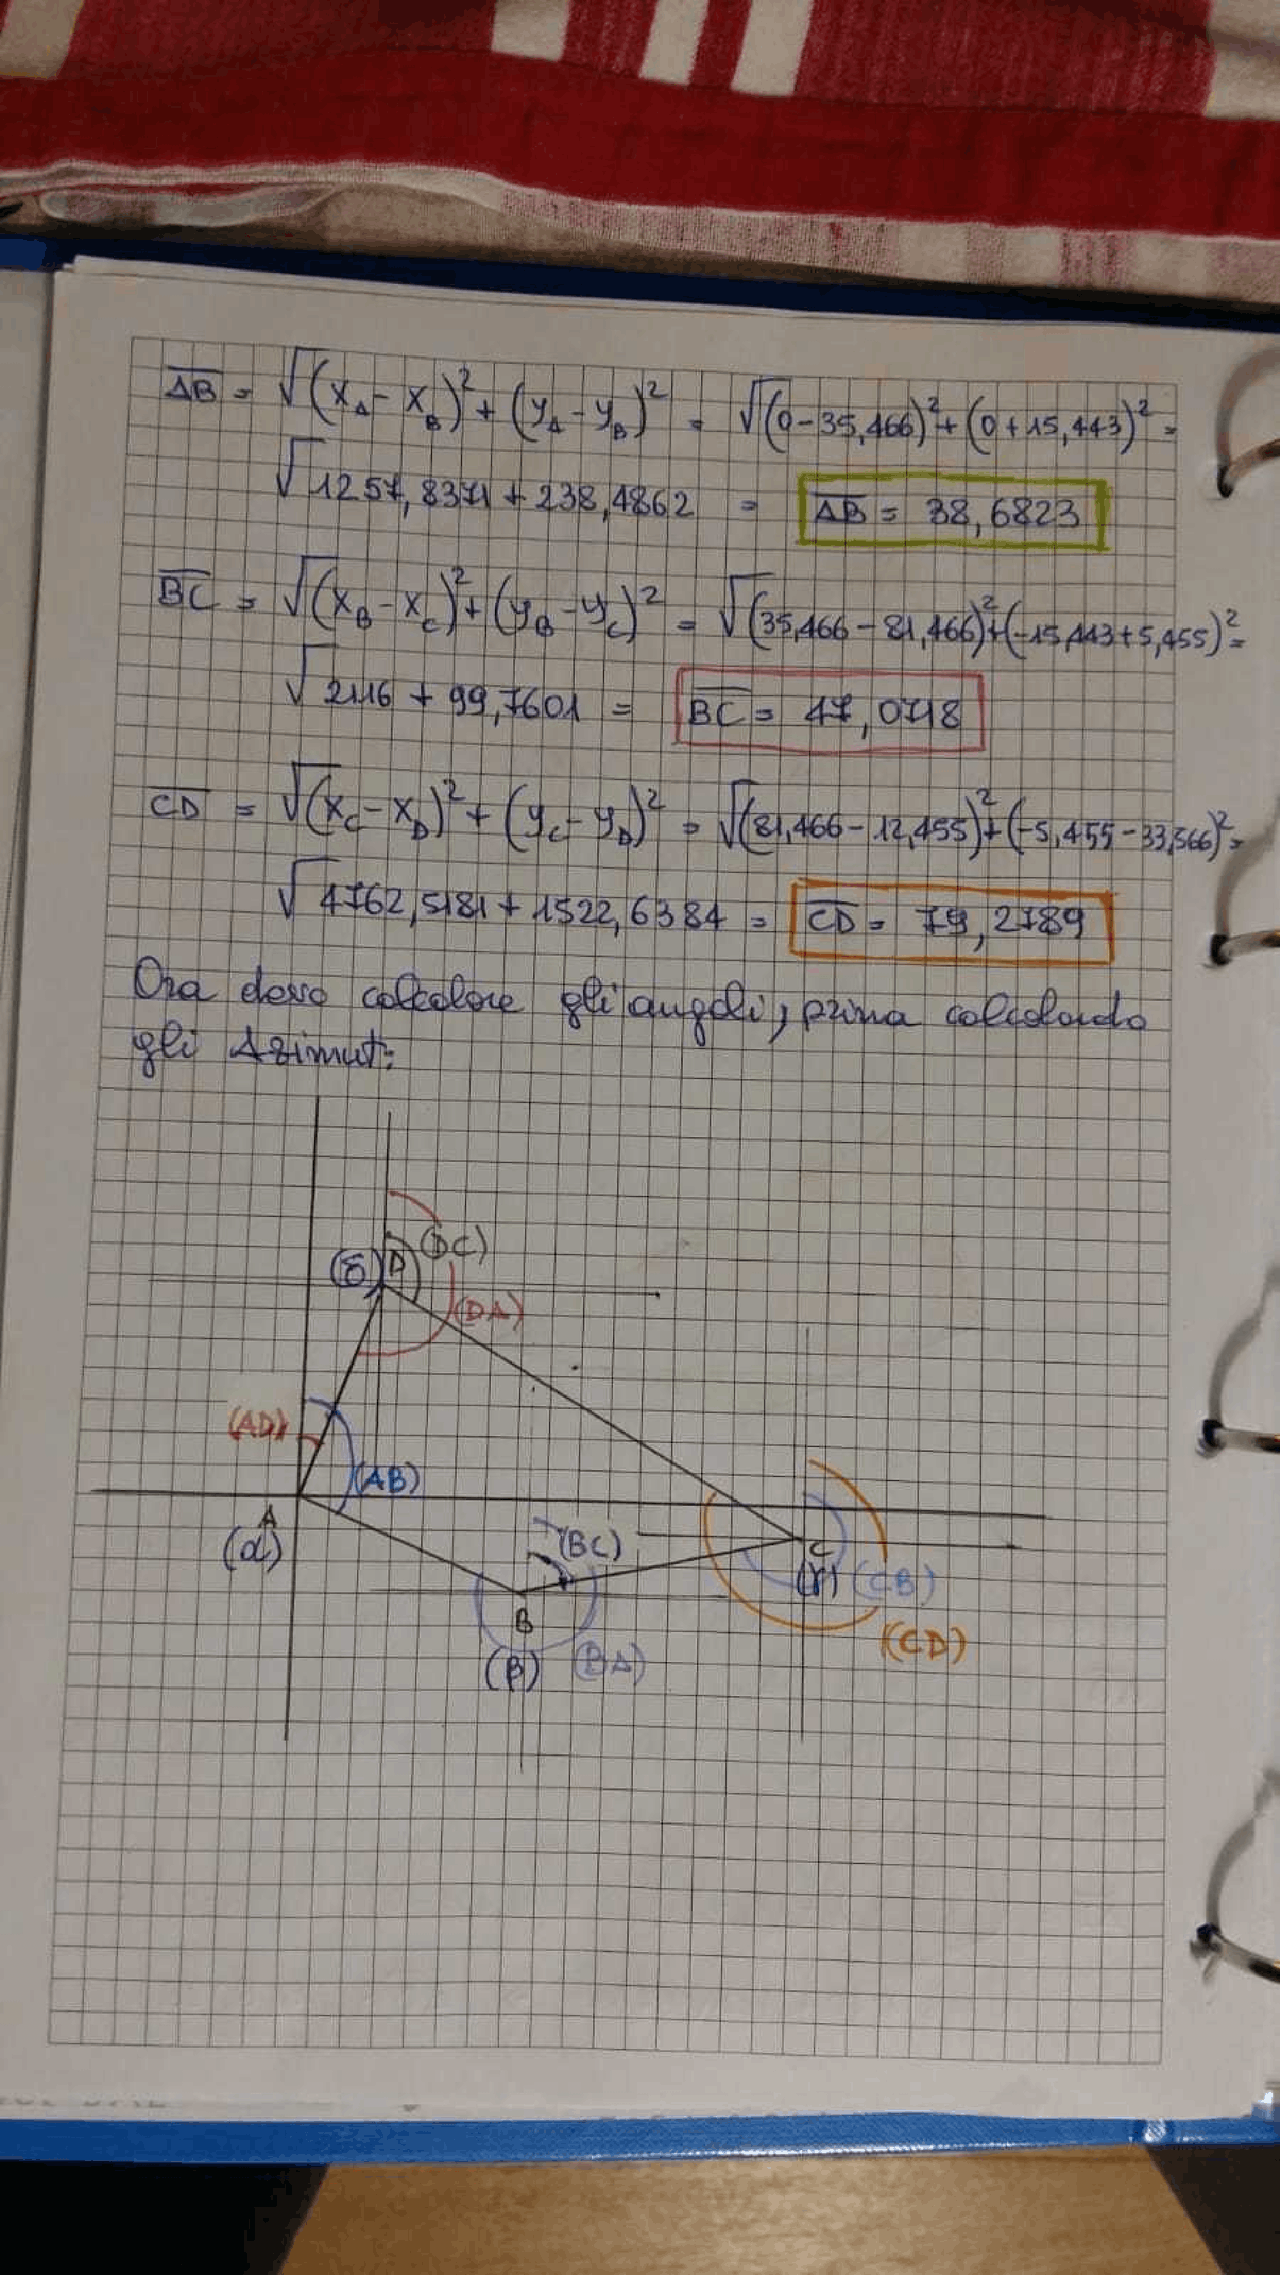 AB = √(x_A - x_B)² + (y_A - y_B)² = √(0 - 35,466)² + (0 + 15,443)² =
√1257,8371 + 238,4862 = AB = 38,6823
BC = √(x_B - x_C)² + (y_B - y_C)² = √(35,466 - 81,466)² + (-15,443 + 5,455)² =
√2116 + 99,7601 = BC = 47,0718
CD = √(x_C - x_D)² + (y_C - y_D)² = √(81,466 - 12,455)² + (-5,455 - 33,566)² =
√4762,5181 + 1522,6384 = CD = 79,2789
Ora devo calcolare gli angoli, prima calcolando
gli Azimut:
(DC)
(δ) D
(DA)
(AD)
(AB)
A
(α)
(BC)
C
(γ) (CB)
B
(CD)
(β) (BA)